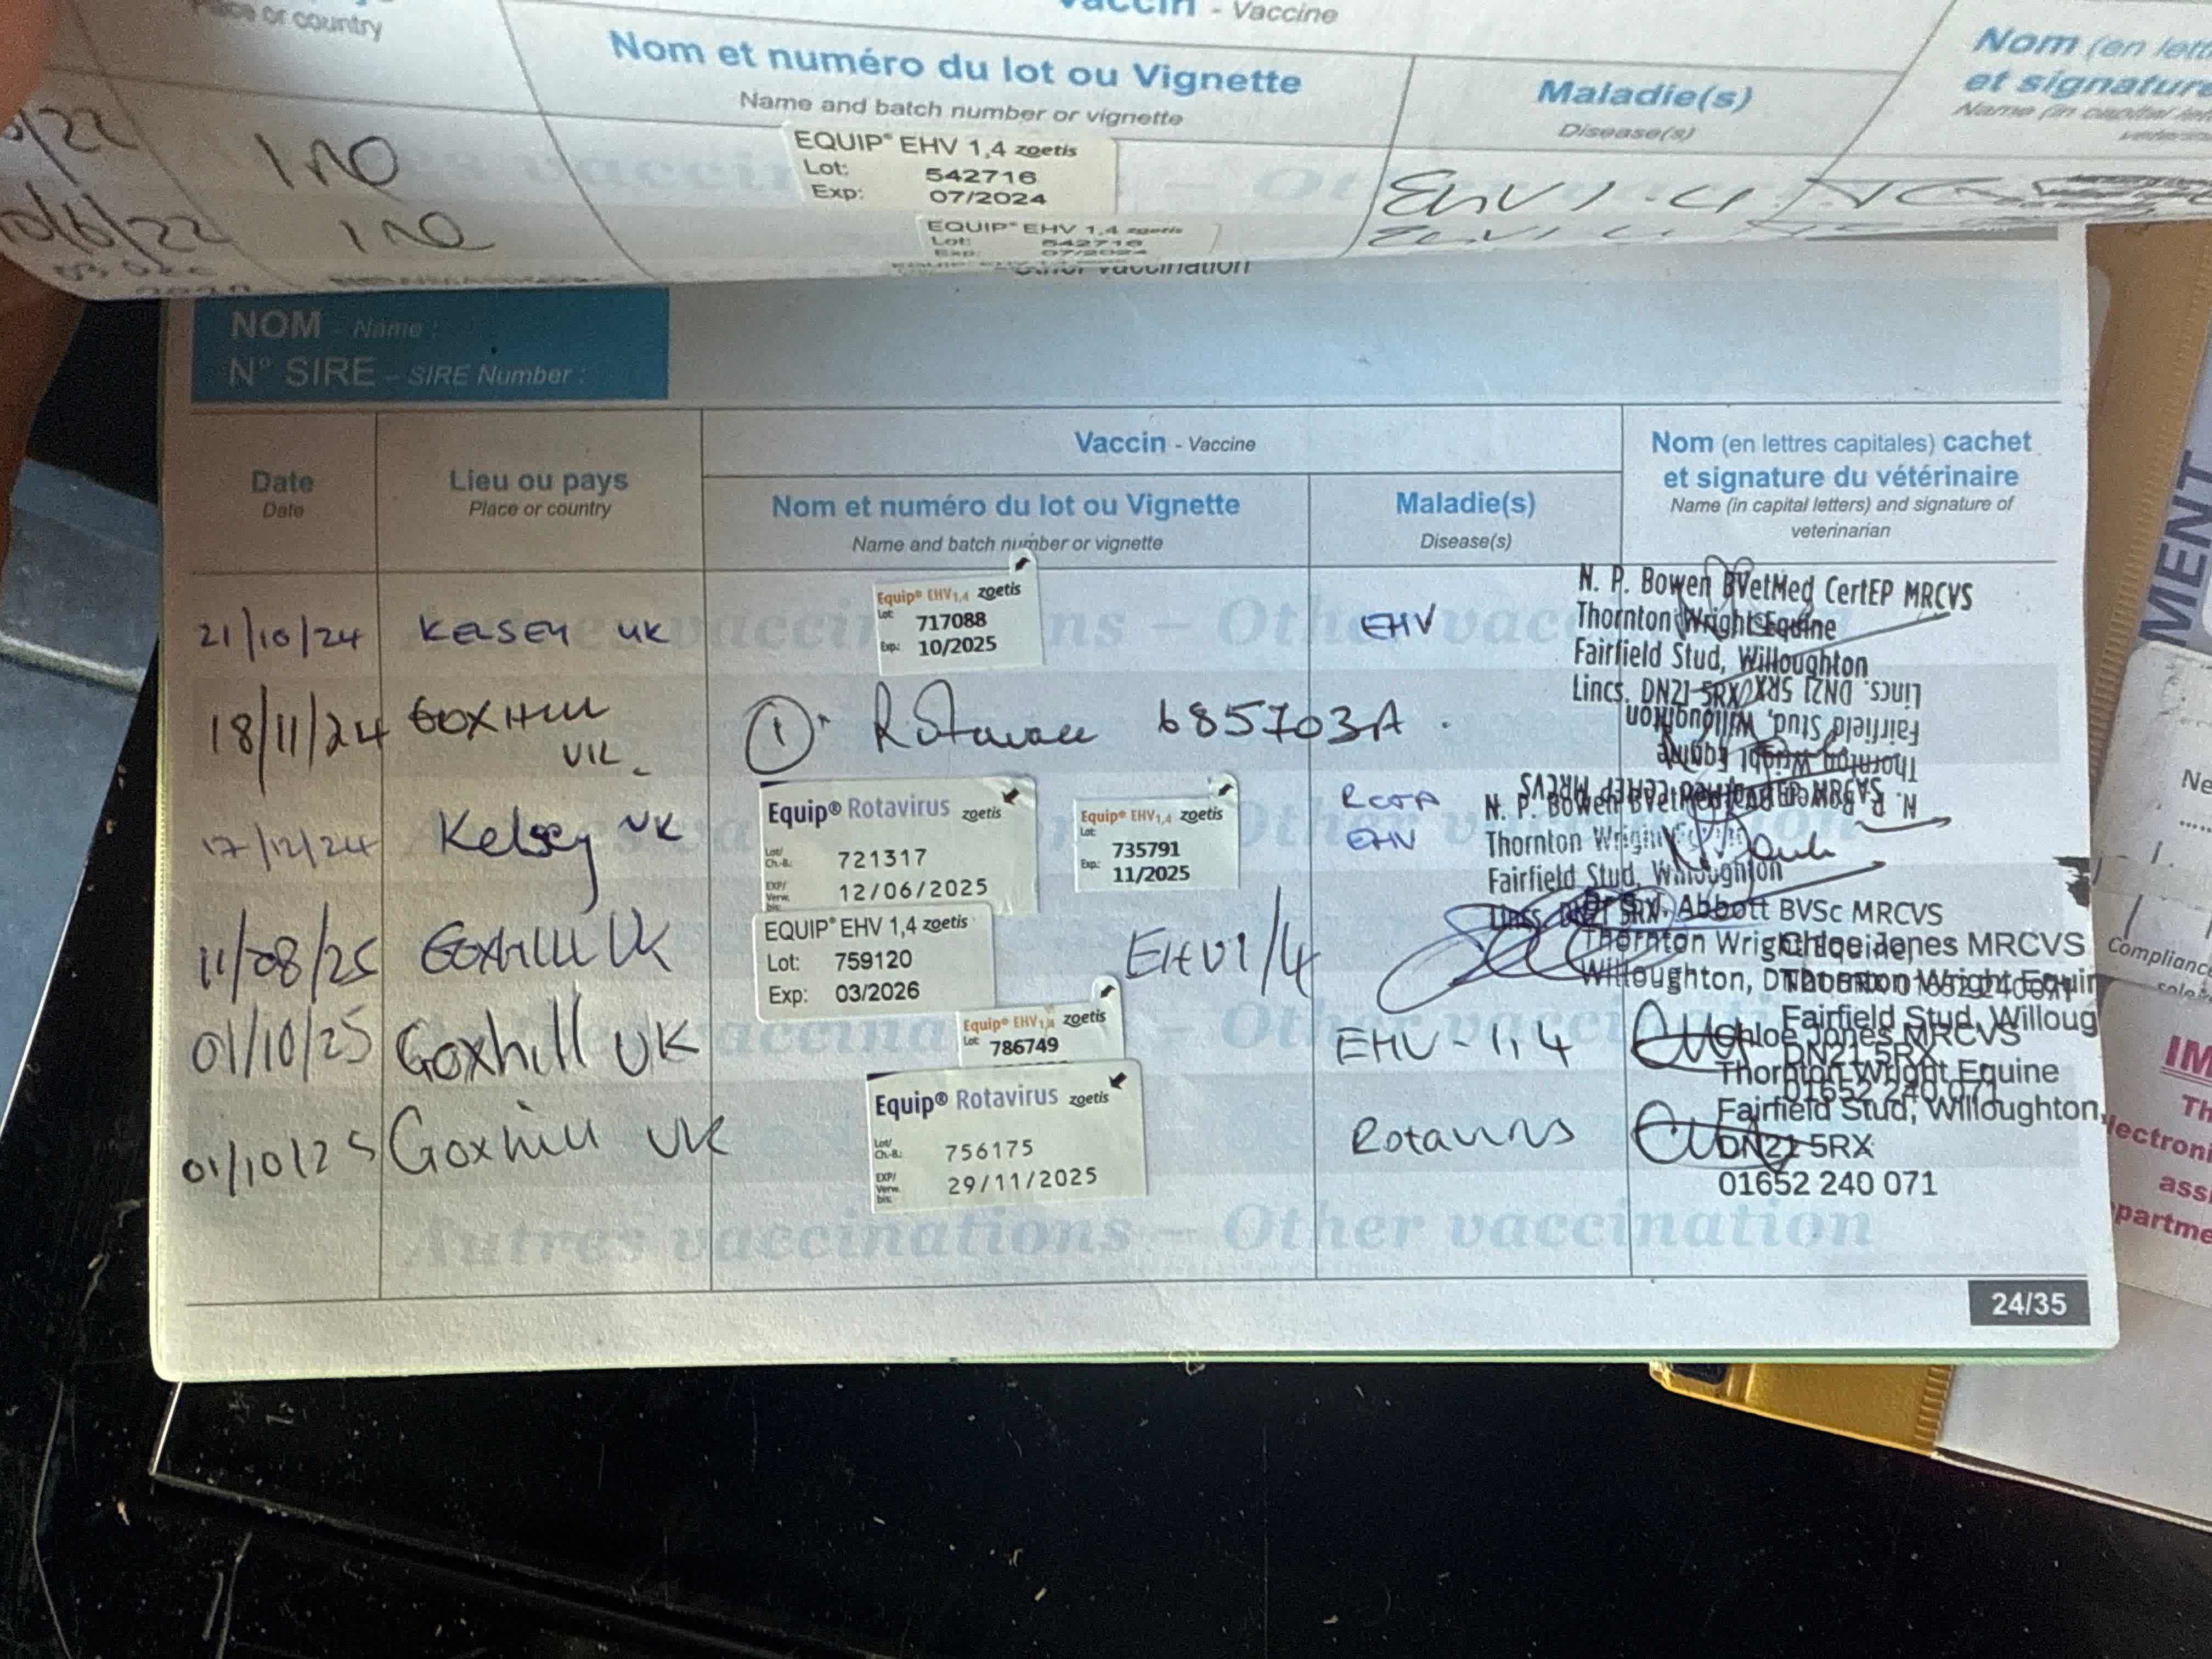 Place or country
Vaccin - Vaccine
Nom et numéro du lot ou Vignette
Name and batch number or vignette
Maladie(s)
Disease(s)
Nom (en lett
et signature
Name (in capital
/22
IRE
EQUIP® EHV 1,4 zoetis
Lot: 542716
Exp: 07/2024
EHV 1.4
10/6/22
IRE
EQUIP® EHV 1,4 zoetis
Lot: 542716
Exp: 07/2024
Other vaccination
NOM - Name :
N° SIRE - SIRE Number :
Date
Date
Lieu ou pays
Place or country
Vaccin - Vaccine
Nom et numéro du lot ou Vignette
Name and batch number or vignette
Maladie(s)
Disease(s)
Nom (en lettres capitales) cachet
et signature du vétérinaire
Name (in capital letters) and signature of
veterinarian
21/10/24
KELSEY UK
Equip® EHV1,4 zoetis
Lot: 717088
Exp.: 10/2025
EHV
N. P. Bowen BVetMed CertEP MRCVS
Thornton Wright Equine
Fairfield Stud, Willoughton
Lincs. DN21 5RX
18/11/24
GOXHILL
UK
1
Rotavac 685703A
Lincs. DN21 5RX
Fairfield Stud, Willoughton
Thornton Wright Equine
17/12/24
Kelsey UK
Equip® Rotavirus zoetis
Lot/
Ch.-B.: 721317
EXP/
Verw.
bis: 12/06/2025
Equip® EHV1,4 zoetis
Lot: 735791
Exp.: 11/2025
ROTA
EHV
N. P. Bowen BVetMed CertEP MRCVS
Thornton Wright
Fairfield Stud, Willoughton
11/08/25
Goxhill UK
EQUIP® EHV 1,4 zoetis
Lot: 759120
Exp: 03/2026
EHV1/4
Abbott BVSc MRCVS
Thornton Wright Equine,
Willoughton,
Chloe Jones MRCVS
Thornton Wright Equin
Fairfield Stud, Willoug
DN21 5RX
01652 240 071
01/10/25
Goxhill UK
Equip® EHV1,4 zoetis
Lot: 786749
EHV-1,4
01/10/25
Goxhill UK
Equip® Rotavirus zoetis
Lot/
Ch.-B.: 756175
EXP/
Verw.
bis: 29/11/2025
Rotavirus
Chloe Jones MRCVS
Thornton Wright Equine
Fairfield Stud, Willoughton,
DN21 5RX
01652 240 071
Autres vaccinations – Other vaccination
24/35
MENT
Ne
Compliance
IM
Th
lectroni
ass
partme